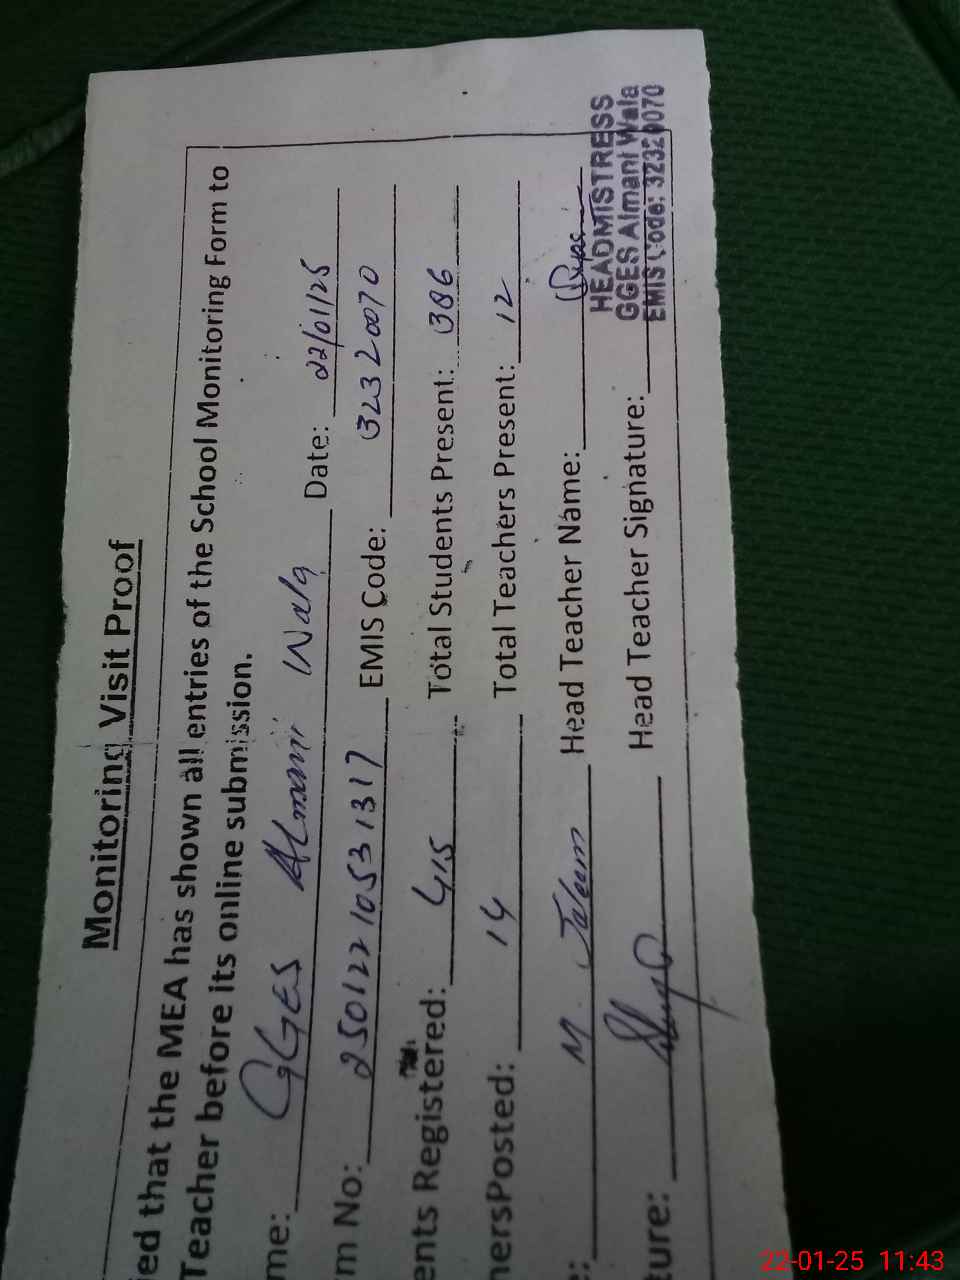 Monitoring Visit Proof
ied that the MEA has shown all entries of the School Monitoring Form to
Teacher before its online submission.
me: GGES Almani Wala Date: 22/01/25
m No: 25012210531317 EMIS Code: 32320070
ents Registered: 415 Total Students Present: 386
hersPosted: 14 Total Teachers Present: 12
e: M. Saleem Head Teacher Name:
ture: Head Teacher Signature:
HEADMISTRESS
GGES Almani Wala
EMIS Code: 32320070
22-01-25 11:43